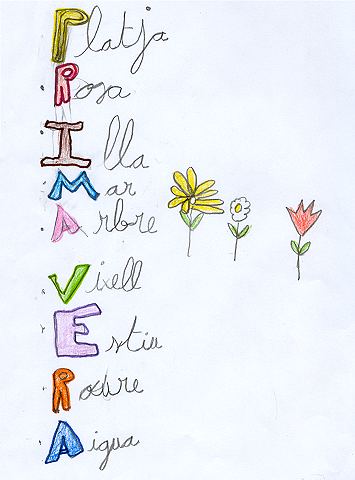 Platja
Rosa
Illa
Mar
Arbre
Vixell
Estiu
Aigua